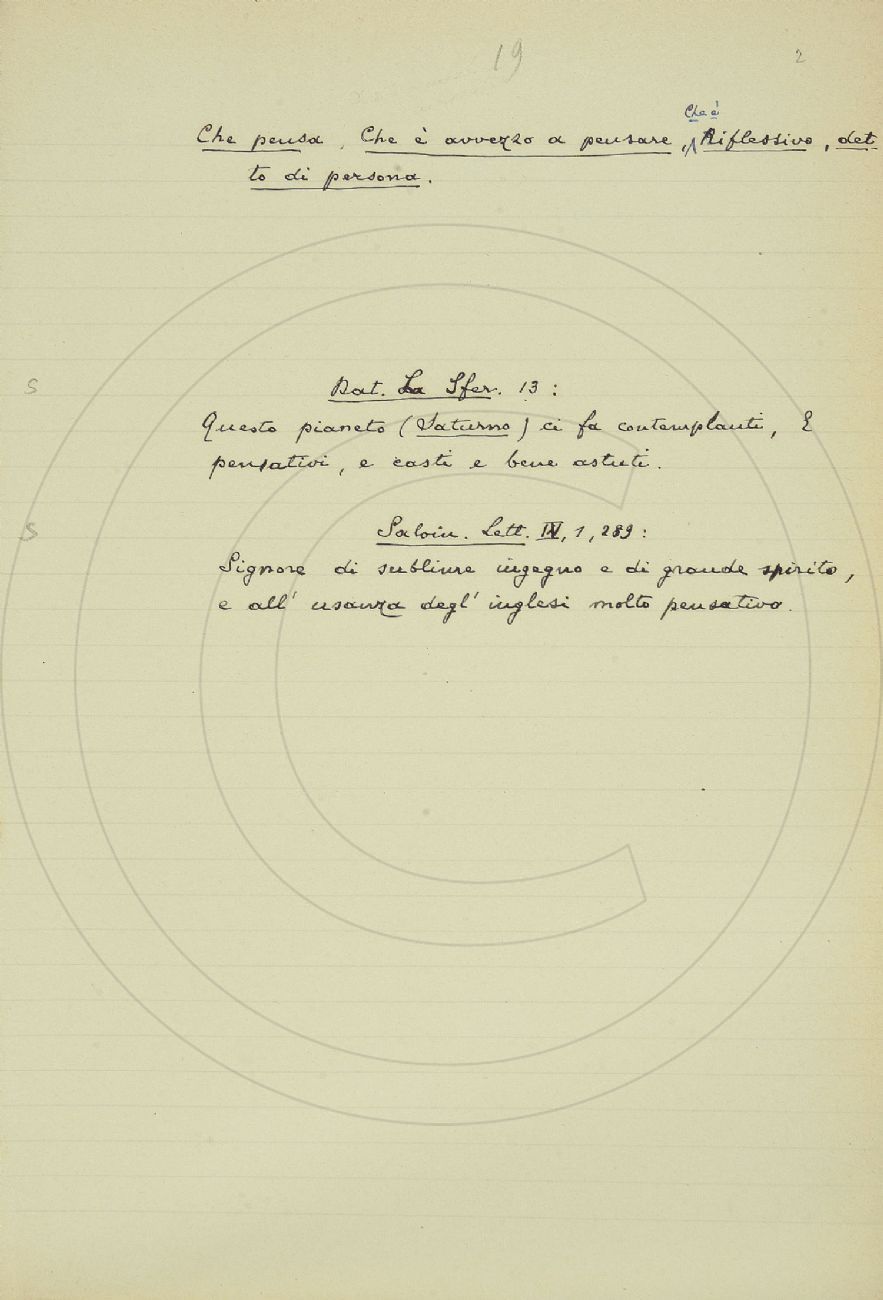 19 2
Che è
Che pensa, Che è avvezzo a pensare, Riflessivo, det-
to di persona.
S Dat. La Sfer. 13:
Questo pianeto (Saturno) ci fa contemplanti, E
pensativi, e casti e bene astuti.
S Salvin. Lett. IV, 1, 289:
Signore di sublime ingegno e di grande spirito,
e all' usanza degl' inglesi molto pensativo.